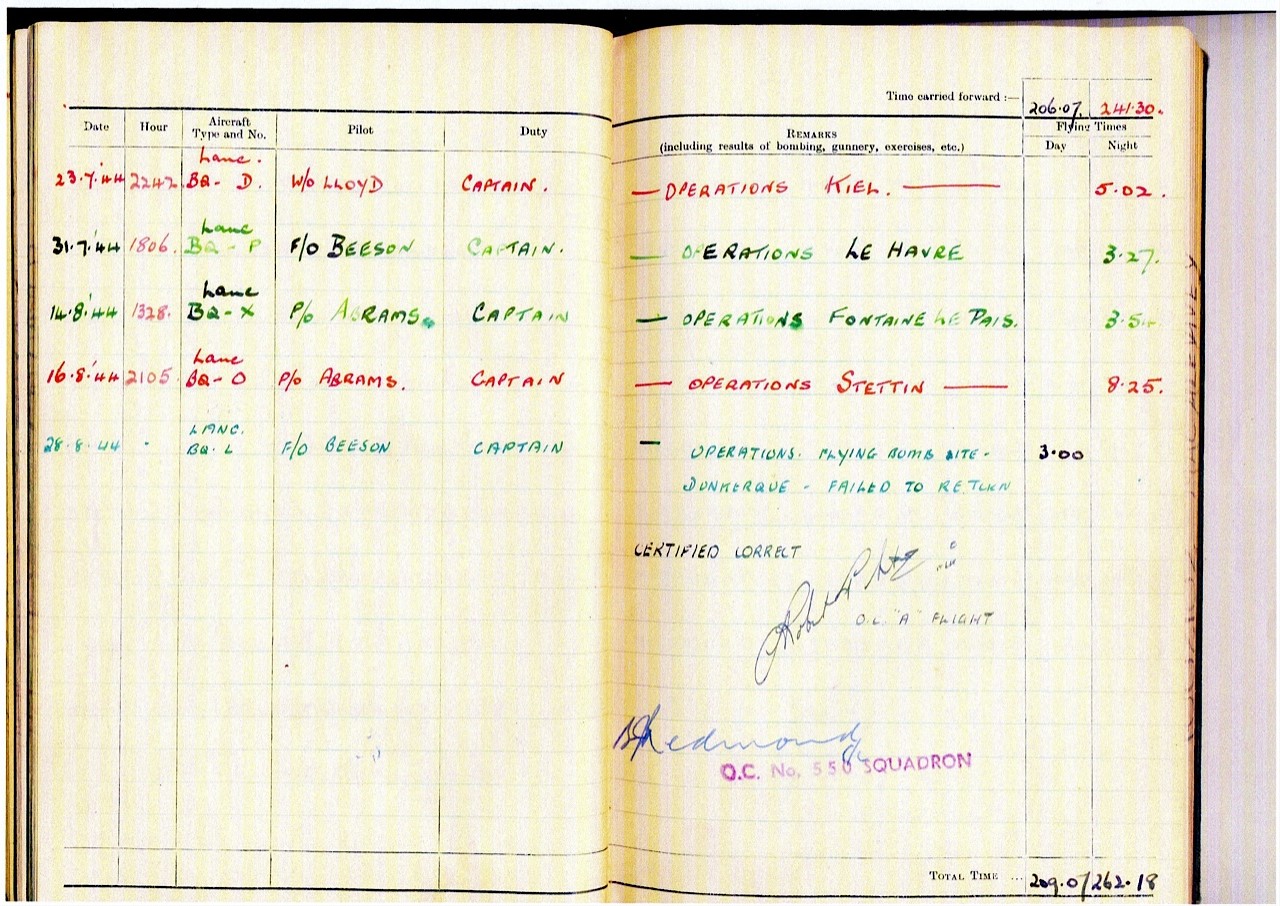 Time carried forward :— 206·07. 241·30.
Date Hour Aircraft Type and No. Pilot Duty REMARKS (including results of bombing, gunnery, exercises, etc.) Flying Times Day Night
Lanc.
23·7·'44 2242 BQ - D. W/O LLOYD CAPTAIN. — OPERATIONS KIEL. — 5·02.
Lanc
31·7·'44 1806. BQ - P F/O BEESON CAPTAIN. — OPERATIONS LE HAVRE 3·27.
Lanc
14·8·'44 1328. BQ - X P/O ABRAMS. CAPTAIN — OPERATIONS FONTAINE LE PAIS. 3·54
Lanc
16·8·'44 2105 BQ - O P/O ABRAMS. CAPTAIN — OPERATIONS STETTIN — 8·25.
LANC.
28·8·44 · BQ. L F/O BEESON CAPTAIN — OPERATIONS. FLYING BOMB SITE - 3·00
DUNKERQUE - FAILED TO RETURN
CERTIFIED CORRECT
Robert
O.C. "A" FLIGHT
Redmond
O.C. No. 550 SQUADRON
TOTAL TIME ... 209·07 262·18